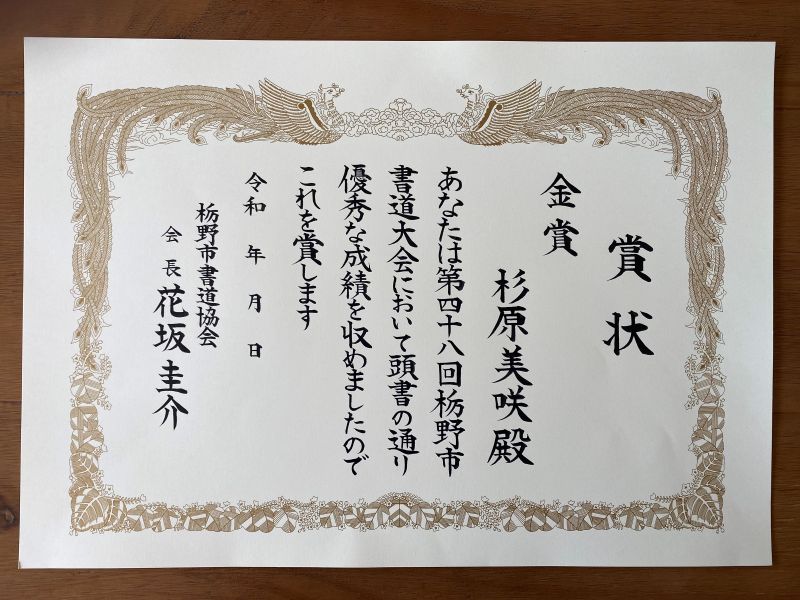 賞状
金賞
杉原美咲殿
あなたは第四十八回栃野市
書道大会において頭書の通り
優秀な成績を収めましたので
これを賞します
令和 年 月 日
栃野市書道協会
会長 花坂圭介